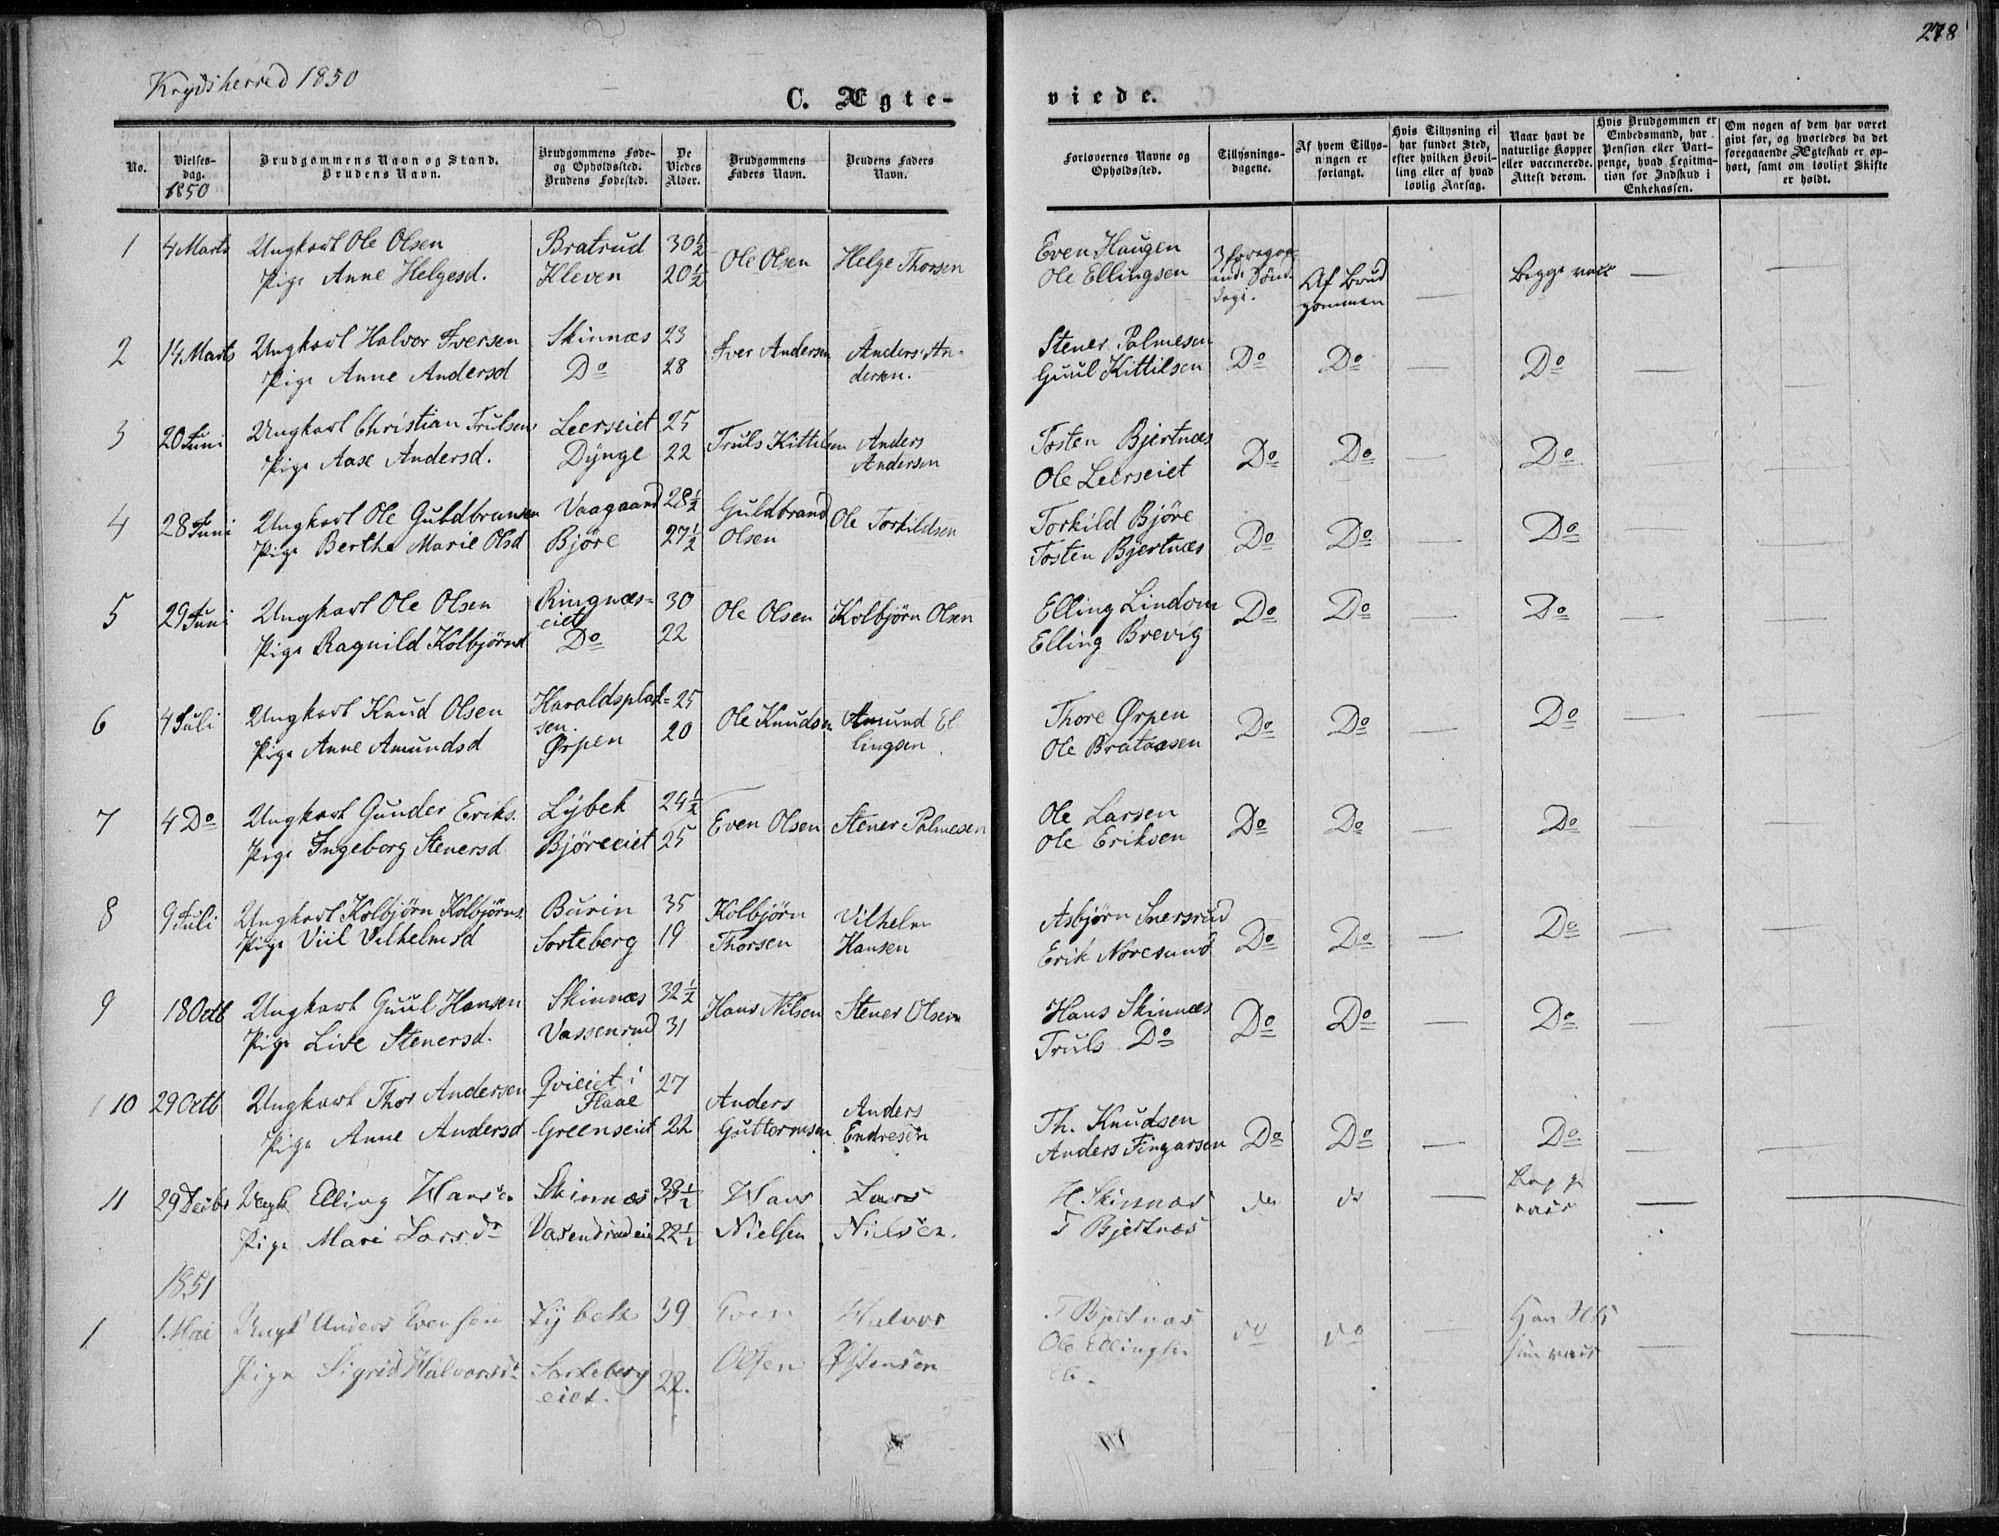 278
Krydsherred 1850
C. Ægte-
viede.
No.
Vielses-
dag.
1850
Brudgommens Navn og Stand.
Brudens Navn.
Brudgommens Føde-
og Opholdssted.
Brudens Fødested.
De
Viedes
Alder.
Brudgommens
Faders Navn.
Brudens Faders
Navn.
Forlovernes Navne og
Opholdssted.
Tillysnings-
dagene.
Af hvem Tillys-
ningen er
forlangt.
Hvis Tillysning ei
har fundet Sted,
efter hvilken Bevil-
ling eller af hvad
lovlig Aarsag.
Naar havt de
naturlige Kopper
eller vaccinerede.
Attest derom.
Hvis Brudgommen er
Embedsmand, har
Pension eller Vart-
penge, hvad Legitima-
tion for Indskud i
Enkekassen.
Om nogen af dem har været
givt før, og hvorledes da det
foregaaende Ægteskab er op-
hørt, samt om lovligt Skifte
er holdt.
1 4 Marts Ungkarl Ole Olsen Bratrud 30½ Ole Olsen Helge Thorsen Even Haugen 3 foregaa- Af Brud Begge vacc — —
Pige Anne Helgesd. Kleven 20½ Ole Ellingsen ende Søn- gommen —
dage.
2 14 Marts Ungkarl Halvor Iversen Skinnæs 23 Iver Andersen Anders An- Stener Palmesen Do Do — Do — —
Pige Anne Andersd Do 28 dersen. Guul Kittilsen
3 20 Juni Ungkarl Christian Trulsen Leerseiet 25 Truls Kittilsen Anders Tosten Bjertnæs Do Do — Do — —
Pige Aase Andersd. Dynge 22 Andersen Ole Leerseiet
4 28 Juni Ungkarl Ole Guldbransen Vaagaard 28½ Guldbrand Ole Torkildsen Torkild Björe Do Do — Do — —
Pige Berthe Marie Olsd Björe 27½ Olsen Tosten Bjertnæs
5 29 Juni Ungkarl Ole Olsen Ringnæs- 30 Ole Olsen Kolbjörn Olsen Elling Lindom Do Do — Do — —
eiet
Pige Ragnild Kolbjörnsd Do 22 Elling Brevig
6 4 Juli Ungkarl Knud Olsen Haraldsplad- 25 Ole Knudsen Amund El Thore Ørpen Do Do — Do — —
sen.
Pige Anne Amundsd Ørpen 20 lingsen Ole Brataasen
7 4 Do Ungkarl Gunder Eriks. Lybek 24½ Even Olsen Stener Palmesen Ole Larsen Do Do — Do — —
Pige Ingeborg Stenersd Björeeiet 25 Ole Eriksen
8 9 Juli Ungkarl Kolbjörn Kolbjörns. Burin 35 Kolbjörn Vilhelm Asbjörn Snersrud Do Do — Do — —
Pige Viil Vilhelmsd Sorteberg 19 Thorsen Hansen Erik Noresund
9 18 Octb Ungkarl Guul Hansen Skinnæs 32½ Hans Nilsen Stener Olsen Hans Skinnæs Do Do — Do — —
Pige Live Stenersd. Vassenrud 31 Truls Do
10 29 Octb Ungkarl Thor Andersen Qvieiet i 27 Anders Anders Th. Knudsen Do Do — Do — —
Flaae
Pige Anne Andersd Greenseiet 22 Guttormsen Endresen Anders Fingarsen
11 29 Decbr Ungk Elling Hansen Skinnæs 33½ Hans Lars H. Skinnæs do do — Begge — —
Pige Mari Larsdr Vasendrudeie 22½ Nielsen Nielsen. T Bjertnæs vacc
1851
1 1 Mai Ungk Anders Evensen Lybek 39 Even Halvor T Bjertnæs do do — —
Pige Sigrid Halvorsdr Sorteberg 22. Olsen Østensen Ole Ellingsen hun vacc —
eiet.